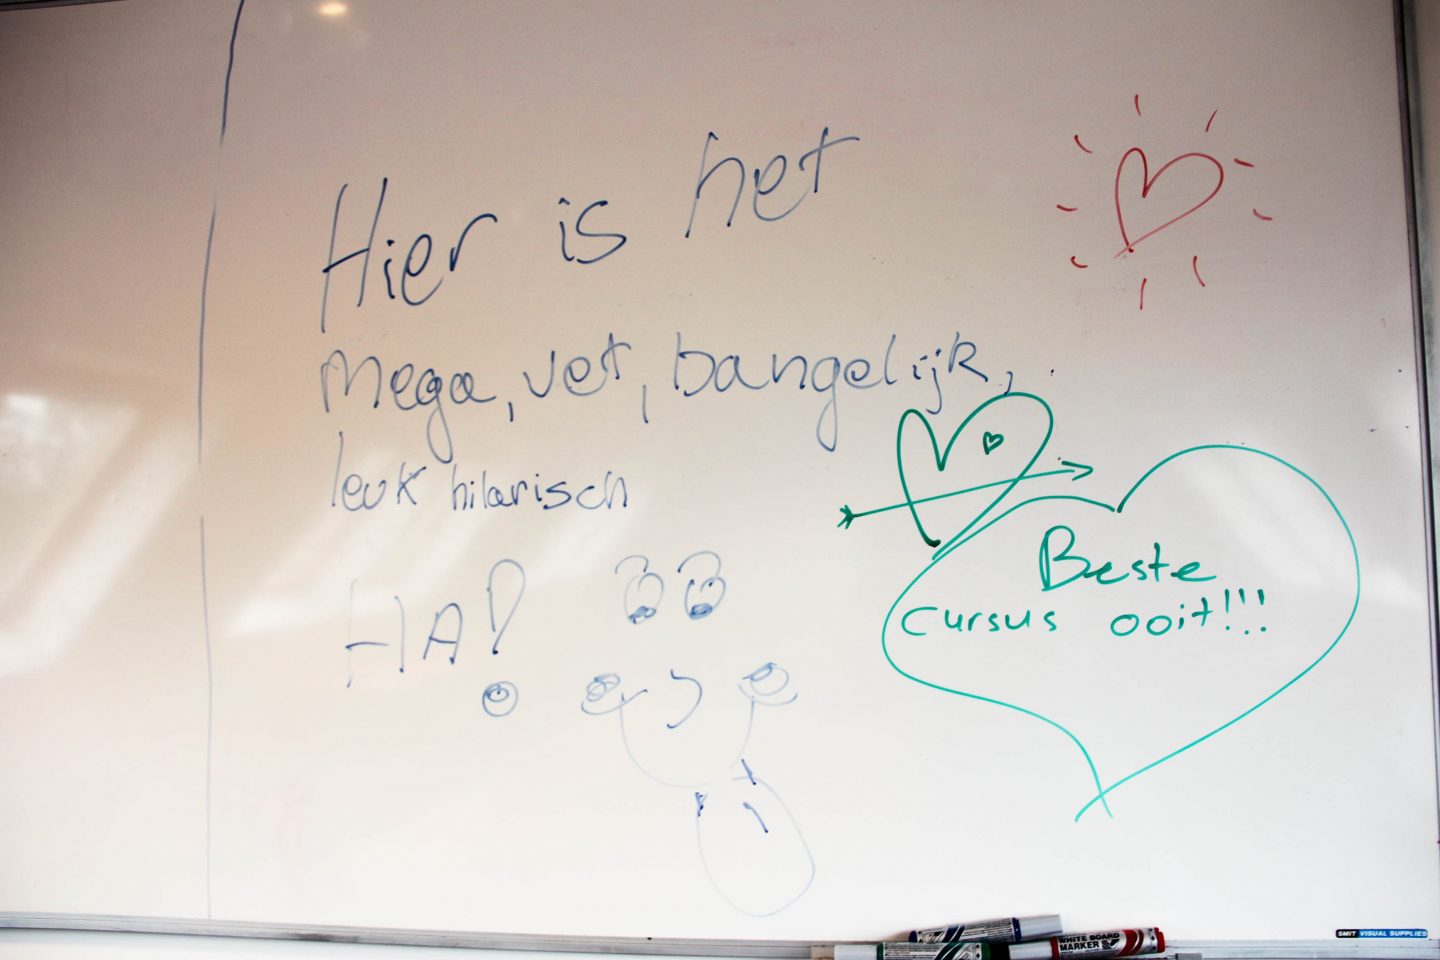 Hier is het
mega, vet, bangelijk,
leuk hilarisch
HA!
Beste
cursus ooit!!!
WHITE BOARD
MARKER
SMIT VISUAL SUPPLIES